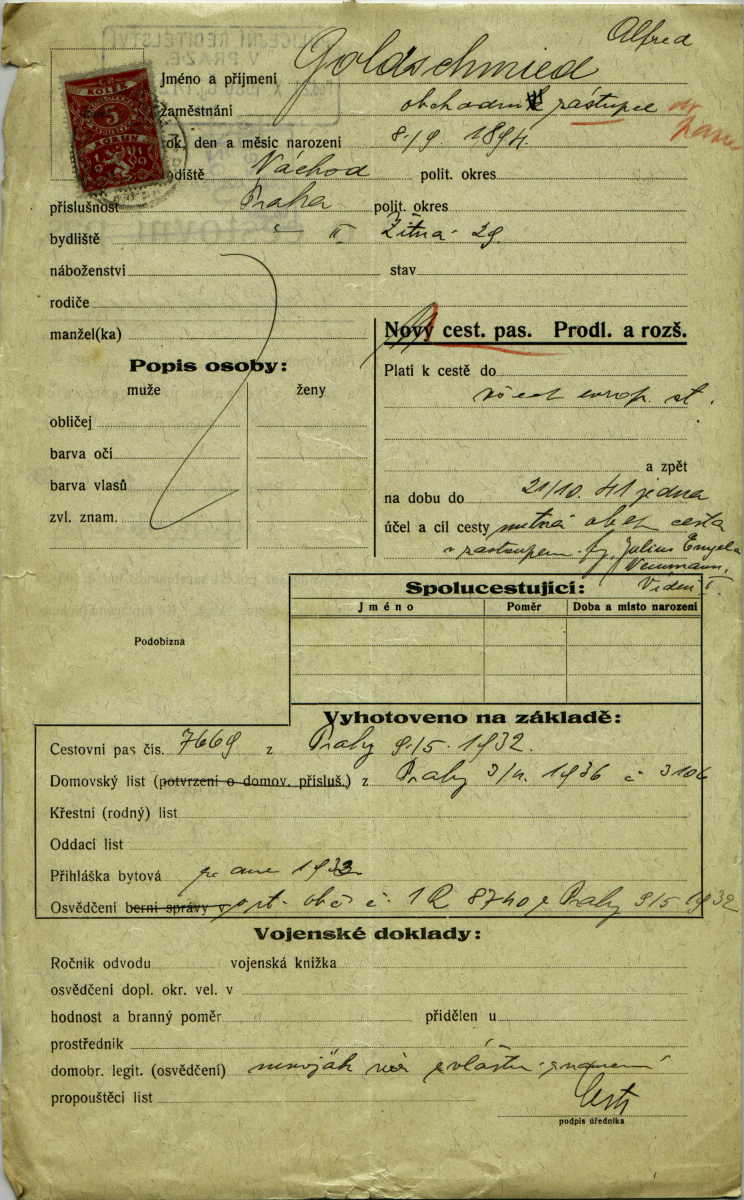 Alfred
Jméno a příjmení Goldschmied
zaměstnání obchodní zástupce
rok, den a měsíc narození 8./9. 1894.
rodiště Náchod polit. okres
příslušnost Praha polit. okres
bydliště " II Žitná 29.
náboženství stav
rodiče
manžel(ka)
Nový cest. pas. Prodl. a rozš.
Popis osoby:
muže ženy
obličej
barva očí
barva vlasů
zvl. znam.
Platí k cestě do
všech evrop. st.
a zpět
na dobu do 21/10. 41 jedna
účel a cíl cesty nutná obch cesta
v zastoupen. fy. Julius Engel a
Neumann.
Vídeň I.
Podobizna
Spolucestující:
Jméno Poměr Doba a místo narození
Vyhotoveno na základě:
Cestovní pas čís. 7669 z Prahy 9./5. 1932.
Domovský list (potvrzení o domov. přísluš.) z Prahy 1936 č 3106
Křestní (rodný) list
Oddací list
Přihláška bytová ze dne 1933
Osvědčení berní správy v st. obč č. 8740 z Prahy 9/5 1932
Vojenské doklady:
Ročník odvodu vojenská knížka
osvědčení dopl. okr. vel. v
hodnost a branný poměr přidělen u
prostředník
domobr. legit. (osvědčení) nevoják
propouštěcí list
podpis úředníka
KOLEK
5
KORUN